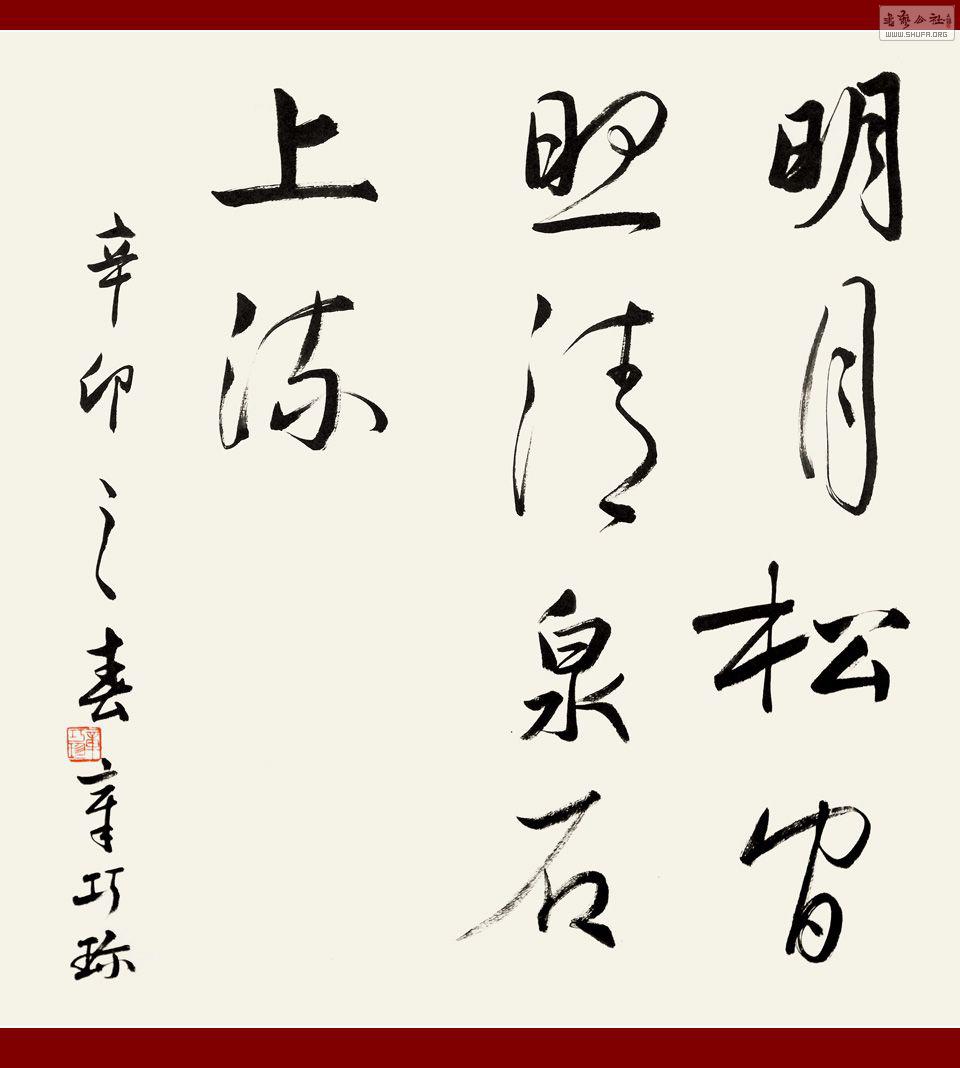 明月松间
照清泉石
上流
辛卯之春章巧珍
书艺公社
WWW.SHUFA.ORG